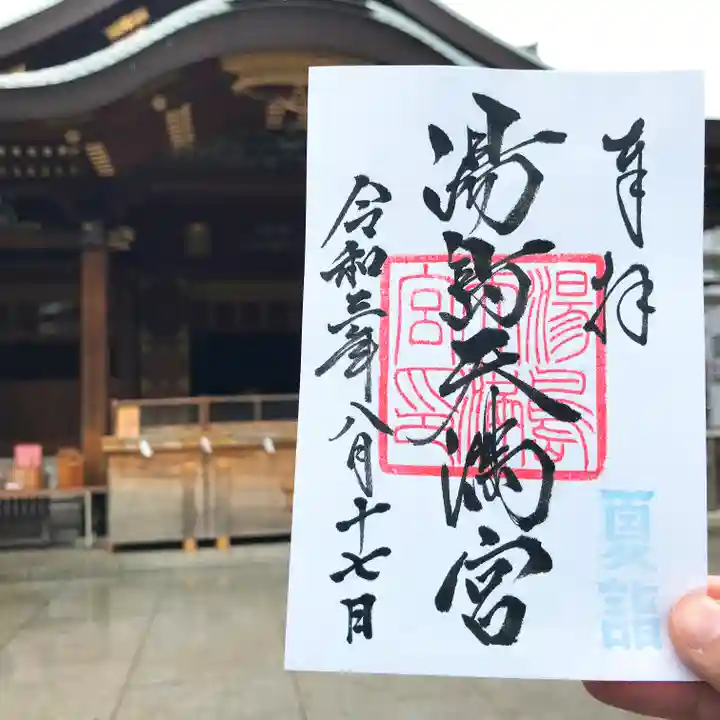 奉拝
夏詣
湯島天満宮
湯島天満宮印
令和三年八月十七日